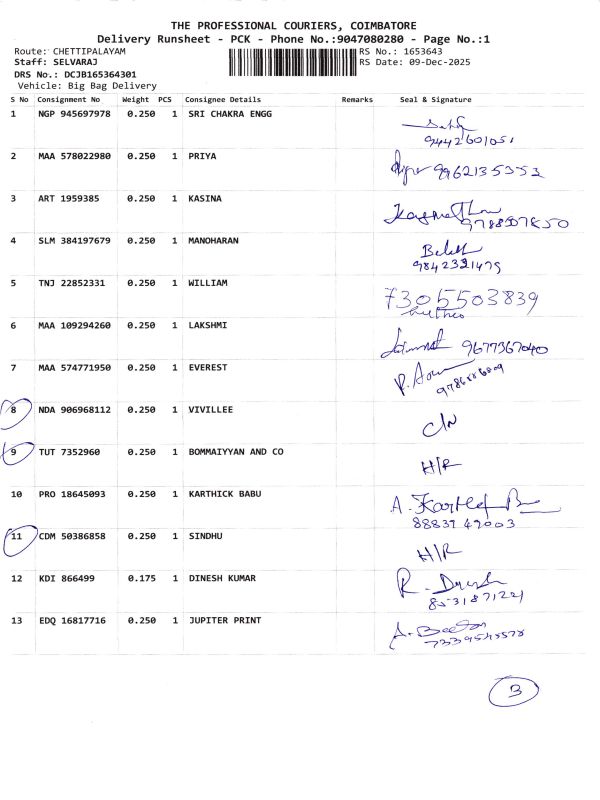 THE PROFESSIONAL COURIERS, COIMBATORE
Delivery Runsheet - PCK - Phone No.:9047080280 - Page No.:1
Route: CHETTIPALAYAM RS No.: 1653643
Staff: SELVARAJ RS Date: 09-Dec-2025
DRS No.: DCJB165364301
Vehicle: Big Bag Delivery
S No Consignment No Weight PCS Consignee Details Remarks Seal & Signature
1 NGP 945697978 0.250 1 SRI CHAKRA ENGG
9442601051
2 MAA 578022980 0.250 1 PRIYA 9962135353
3 ART 1959385 0.250 1 KASINA
4 SLM 384197679 0.250 1 MANOHARAN
9842321475
5 TNJ 22852331 0.250 1 WILLIAM 7305503839
6 MAA 109294260 0.250 1 LAKSHMI 9677367040
7 MAA 574771950 0.250 1 EVEREST
8 NDA 906968112 0.250 1 VIVILLEE C/N
9 TUT 7352960 0.250 1 BOMMAIYYAN AND CO H/R
10 PRO 18645093 0.250 1 KARTHICK BABU
11 CDM 50386858 0.250 1 SINDHU H/R
12 KDI 866499 0.175 1 DINESH KUMAR
8531871221
13 EDQ 16817716 0.250 1 JUPITER PRINT
3